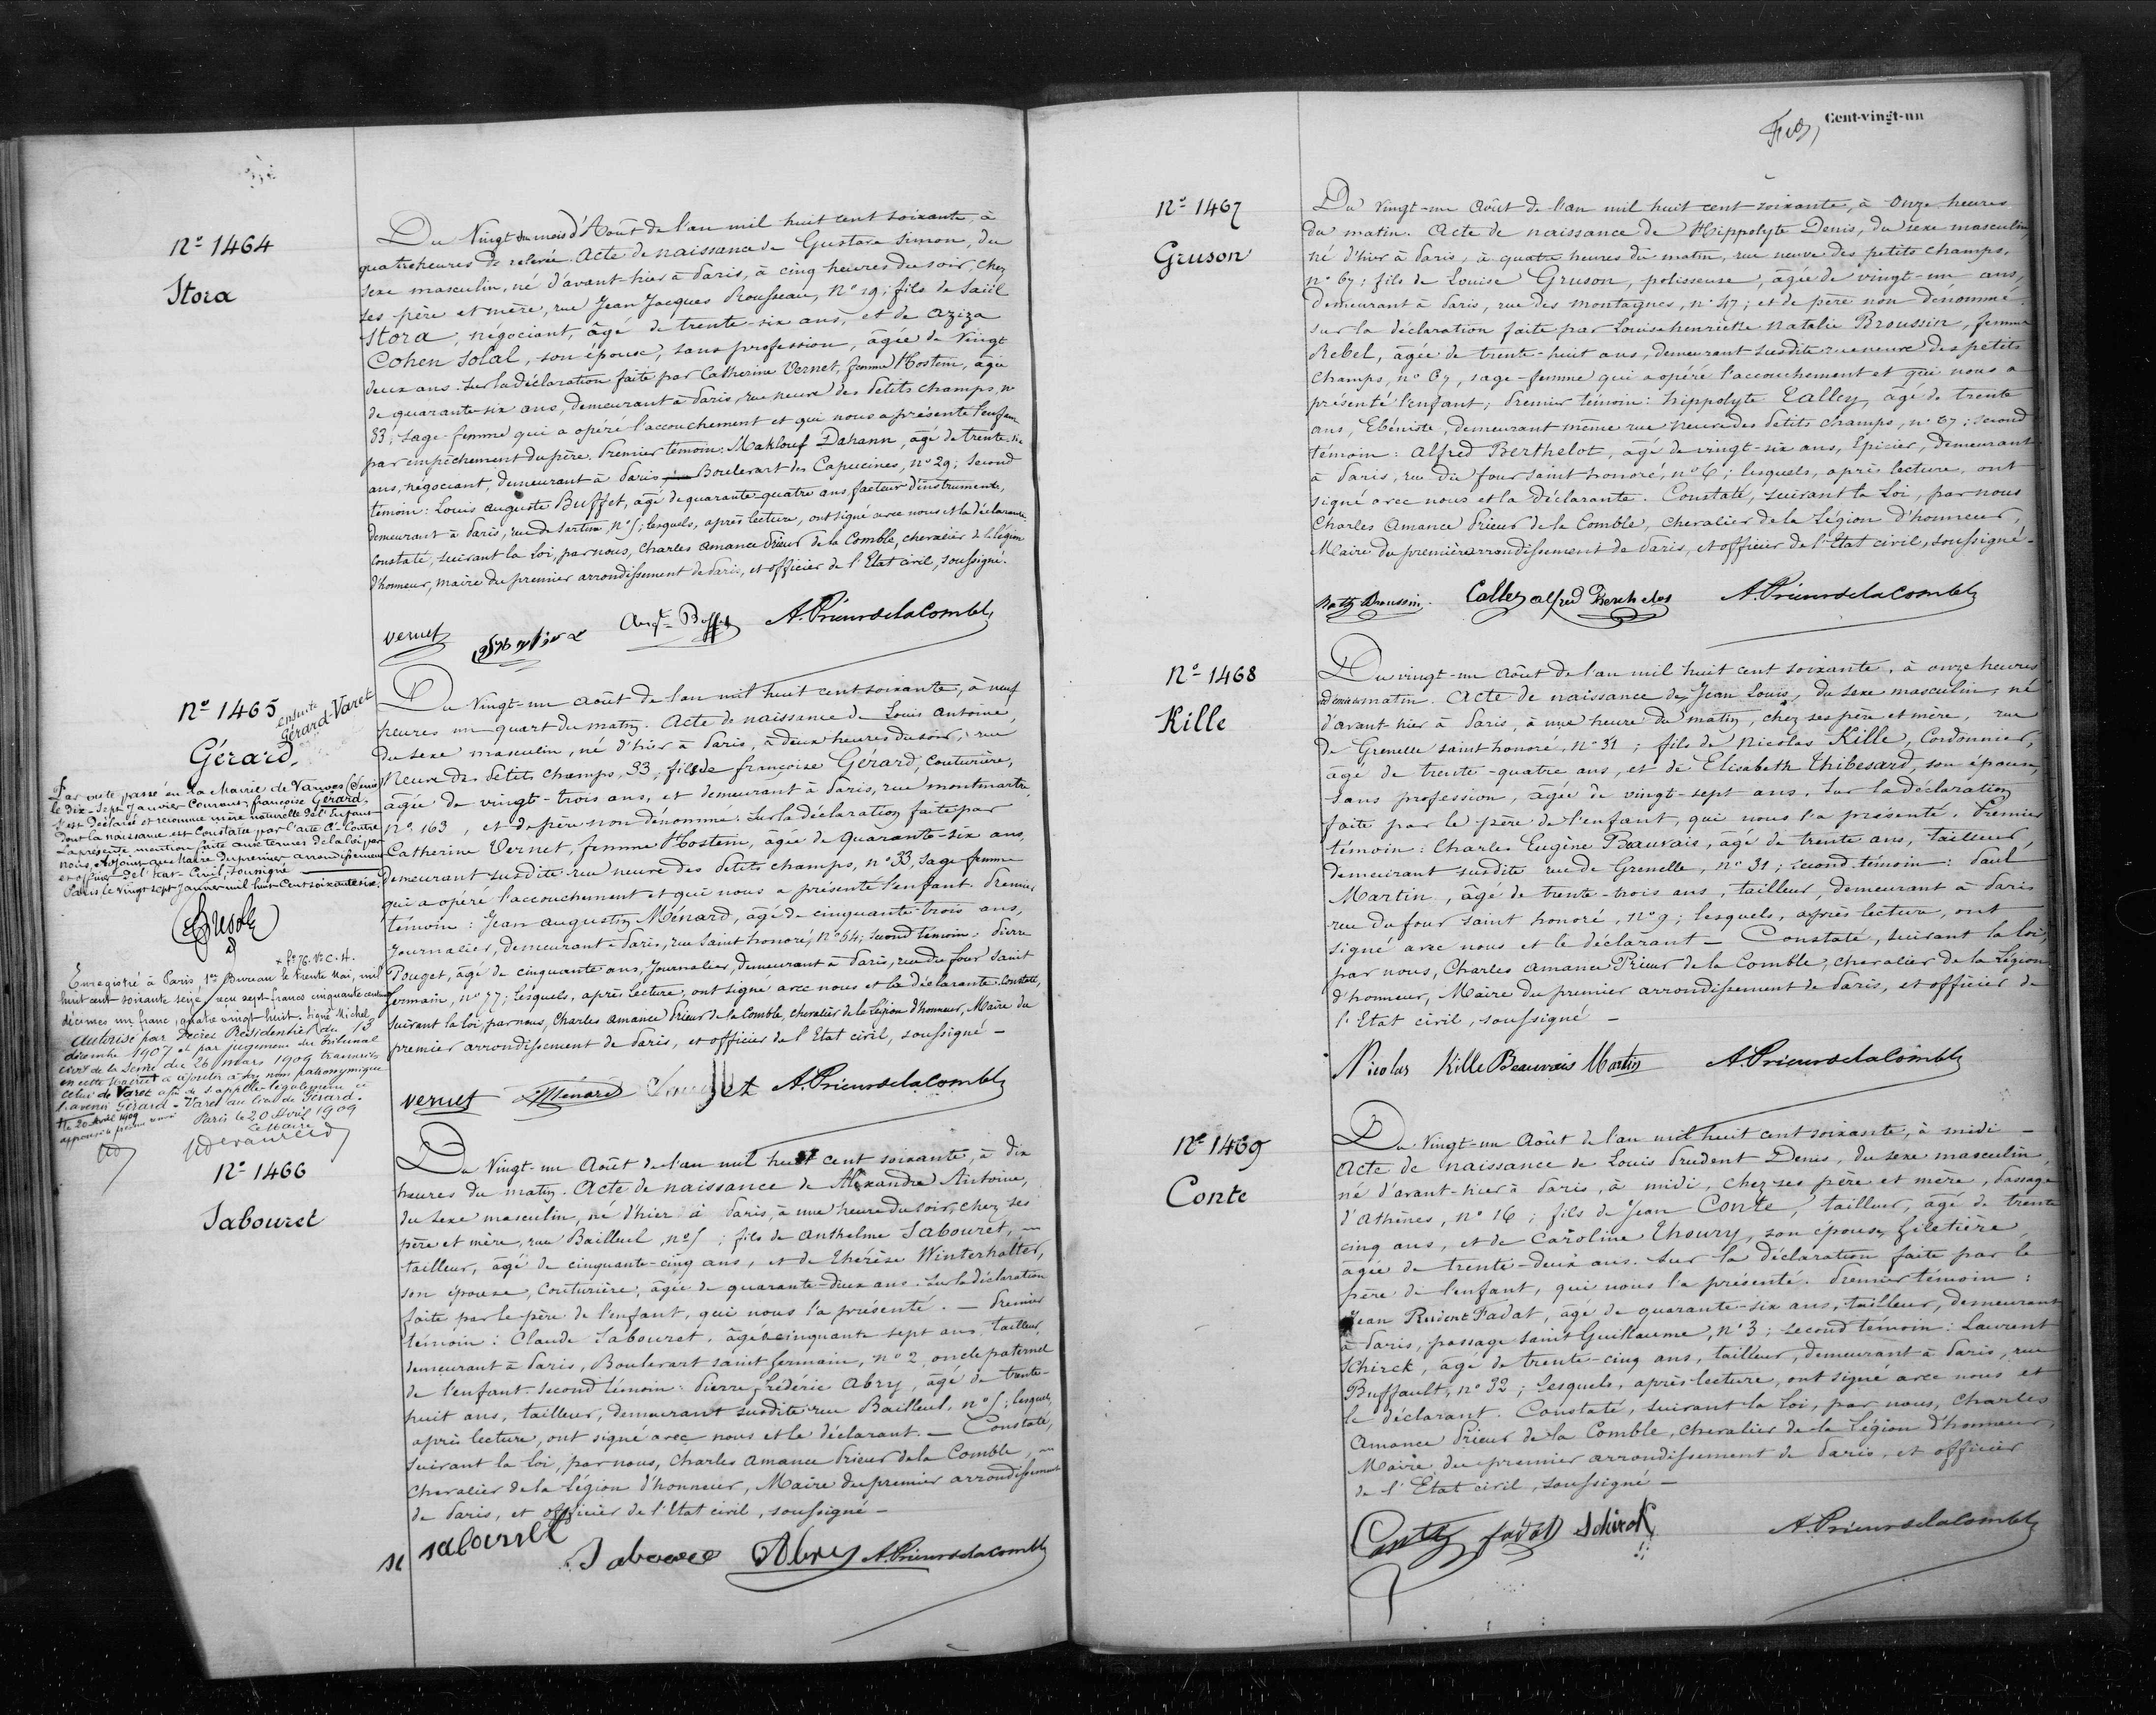 Nº 1464
Stora
Du Vingt du mois d'Août de l'an mil huit cent soixante, à
quatre heures de relevée. Acte de naissance de Gustave Simon, du
sexe masculin, né d'avant-hier à Paris, à cinq heures du soir, chez
ses père et mère, rue Jean Jacques Rousseau, nº 19; fils de Saül
Stora, négociant, âgé de trente-six ans, et de Aziza
Cohen Solal, son épouse, sans profession, âgée de vingt
deux ans. Sur la déclaration faite par Catherine Vernet, femme Hostein, âgée
de quarante-six ans, demeurant à Paris, rue neuve des Petits champs, nº
33, sage-femme qui a opéré l'accouchement et qui nous a présenté l'enfant
par empêchement du père. Premier témoin: Maklouf Dahann, âgé de trente-six
ans, négociant, demeurant à Paris Boulevart des Capucines, nº 29; second
témoin: Louis Auguste Buffet, âgé de quarante-quatre ans, facteur d'instruments,
demeurant à Paris, rue de Sartine, nº 5; lesquels, après lecture, ont signé avec nous et la déclarante.
Constaté, suivant la Loi, par nous, Charles Amance Prieur de la Comble, chevalier de la légion
d'honneur, maire du premier arrondissement de Paris, et officier de l'Etat civil, soussigné.
Vernet Augte Buffet A. Prieur de la Comble
Nº 1465
Gérard
ensuite
Gérard-Varet
Par acte passé en la Mairie de Vanves (Seine)
le dix-sept Janvier Courant, françoise Gérard
s'est déclarée et reconnue mère naturelle de l'Enfant
dont la naissance est constatée par l'acte Ci-Contre
La présente mention faite aux termes de la loi par
nous, Adjoint au Maire du premier arrondissement
et officier de l'Etat-Civil, soussigné
Paris, le vingt sept Janvier mil huit Cent soixante seize.
x fº 76. Vº C. 4.
Enregistré à Paris, 1er Bureau le trente Mai, mil
huit cent soixante seize, reçu sept francs cinquante centimes
décimes un franc, quatre vingt huit. Signé Michel
Autorisé par Décret Présidentiel du 13
décembre 1907 et par jugement du tribunal
civil de la Seine du 26 mars 1909 transcrit
en cette mairie à ajouter à son nom patronymique
celui de Varet afin de s'appeler légalement à
l'avenir Gérard-Varet au lieu de Gérard.
Paris le 20 Avril 1909
Le Maire
Du Vingt-un Août de l'an mil huit cent soixante, à neuf
heures un quart du matin. Acte de naissance de Louis Antoine,
du sexe masculin, né d'hier à Paris, à deux heures du soir, rue
Neuve des Petits champs, 33, fils de françoise Gérard, couturière,
âgée de vingt-trois ans, et demeurant à Paris, rue montmartre,
nº 163, et de père non dénommé. Sur la déclaration faite par
Catherine Vernet, femme Hostein, âgée de Quarante-six ans,
demeurant susdite rue neuve des Petits champs, nº 33, sage-femme
qui a opéré l'accouchement et qui nous a présenté l'enfant. Premier
témoin: Jean Augustin Ménard, âgé de cinquante-trois ans,
Journalier, demeurant à Paris, rue Saint honoré, nº 54; second témoin: Pierre
Pouget, âgé de cinquante ans, Journalier, demeurant à Paris, rue du four Saint
Germain, nº 77; lesquels, après lecture, ont signé avec nous et la déclarante. Constaté,
suivant la loi, par nous, Charles Amance Prieur de la Comble, chevalier de la Légion d'honneur, Maire du
premier arrondissement de Paris, et officier de l'Etat civil, soussigné -
Vernet Ménard A. Prieur de la Comble
Nº 1466
Sabouret
Du Vingt-un Août de l'an mil huit cent soixante, à dix
heures du matin. Acte de naissance de Alexandre Antoine,
du sexe masculin, né d'hier à Paris, à une heure du soir, chez ses
père et mère, rue Bailleul, nº 5; fils de Anthelme Sabouret,
tailleur, âgé de cinquante-cinq ans, et de Thérèse Winterhalter,
son épouse, couturière; âgée de quarante-deux ans. Sur la déclaration
faite par le père de l'enfant, qui nous l'a présenté. - Premier
témoin: Claude Sabouret, âgé de cinquante sept ans, tailleur,
demeurant à Paris, Boulevart saint Germain, nº 2, oncle paternel
de l'enfant. Second témoin: Pierre frédéric Abry, âgé de trente-
huit ans, tailleur, demeurant susdite rue Bailleul, nº 5; lesquels,
après lecture, ont signé avec nous et le déclarant. - Constaté,
suivant la Loi, par nous, Charles Amance Prieur de la Comble,
chevalier de la Légion d'honneur, Maire du premier arrondissement
de Paris, et officier de l'Etat civil, soussigné -
sabouret Sabouret Abry A. Prieur de la Comble
Cent-vingt-un
Nº 1467
Gruson
Du vingt-un Août de l'an mil huit cent soixante, à onze heures
du matin. Acte de naissance de Hippolyte Denis, du sexe masculin,
né d'hier à Paris, à quatre heures du matin, rue neuve des petits champs,
nº 67; fils de Louise Gruson, polisseuse, âgée de vingt-un ans,
demeurant à Paris, rue des montagnes, nº 47; et de père non dénommé.
Sur la déclaration faite par Louise henriette Natalie Broussin, femme
Rebel, âgée de trente-huit ans, demeurant susdite rue neuve des petits
champs, nº 67, sage-femme qui a opéré l'accouchement et qui nous a
présenté l'enfant; Premier témoin: hippolyte Calley, âgé de trente
ans, Ebéniste, demeurant même rue Neuve des Petits champs, nº 67; second
témoin: Alfred Berthelot, âgé de vingt-six ans, Epicier, demeurant
à Paris, rue du four Saint honoré, nº 6; lesquels, après lecture, ont
signé avec nous et la déclarante. Constaté, suivant la Loi, par nous
Charles Amance Prieur de la Comble, chevalier de la Légion d'honneur,
Maire du premier arrondissement de Paris, et officier de l'Etat civil, soussigné -
Natie Broussin. Calley alfred Berthelot A. Prieur de la Comble
Nº 1468
Kille
Du vingt-un Août de l'an mil huit cent soixante, à onze heures
et demie du matin. Acte de naissance de Jean Louis, du sexe masculin, né
d'avant-hier à Paris, à une heure du matin, chez ses père et mère, rue
de Grenelle saint honoré, nº 31; fils de Nicolas Kille, Cordonnier,
âgé de trente-quatre ans, et de Elisabeth Thibesard, son épouse,
sans profession, âgée de vingt-sept ans. Sur la déclaration
faite par le père de l'enfant, qui nous l'a présenté. Premier
témoin: Charles Eugène Beauvais, âgé de trente ans, tailleur,
demeurant susdite rue de Grenelle, nº 31; second témoin: Paul
Martin, âgé de trente-trois ans, tailleur, demeurant à Paris
rue du four saint honoré, nº 9; lesquels, après lecture, ont
signé avec nous et le déclarant - Constaté, suivant la loi,
par nous, Charles Amance Prieur de la Comble, chevalier de la Légion
d'honneur, Maire du premier arrondissement de Paris, et officier de
l'Etat civil, soussigné -
Nicolas Kille Beauvais Martin A. Prieur de la Comble
Nº 1469
Conte
Du Vingt-un Août de l'an mil huit cent soixante, à midi -
Acte de naissance de Louis Prudent Denis, du sexe masculin,
né d'avant-hier à Paris, à midi, chez ses père et mère, Passage
d'Athènes, nº 16; fils de Jean Conte, tailleur, âgé de trente
cinq ans, et de Caroline Thoury, son épouse, giletière,
âgée de trente-deux ans. Sur la déclaration faite par le
père de l'enfant, qui nous l'a présenté. Premier témoin:
Jean Prudent Fadat, âgé de quarante-six ans, tailleur, demeurant
à Paris, passage Saint Guillaume, nº 3; second témoin: Laurent
Schirck, âgé de trente-cinq ans, tailleur, demeurant à Paris, rue
Buffault, nº 32; lesquels, après lecture, ont signé avec nous et
le déclarant. Constaté, suivant la Loi, par nous, Charles
Amance Prieur de la Comble, chevalier de la Légion d'honneur,
Maire du premier arrondissement de Paris, et officier
de l'Etat civil, soussigné -
Conte fadat Schirck A. Prieur de la Comble